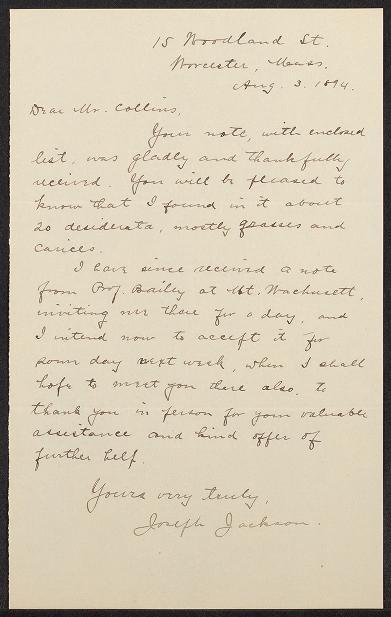 15 Woodland St.
Worcester, Mass.
Aug. 3. 1894.
Dear Mr. Collins,
Your note, with enclosed
list, was gladly and thankfully
received. You will be pleased to
know that I found in it about
20 desiderata, mostly grasses and
carices.
I have since received a note
from Prof. Bailey at Mt. Wachusett,
inviting me there for a day, and
I intend now to accept it for
some day next week, when I shall
hope to meet you there also, to
thank you in person for your valuable
assistance and kind offer of
further help.
Yours very truly,
Joseph Jackson.